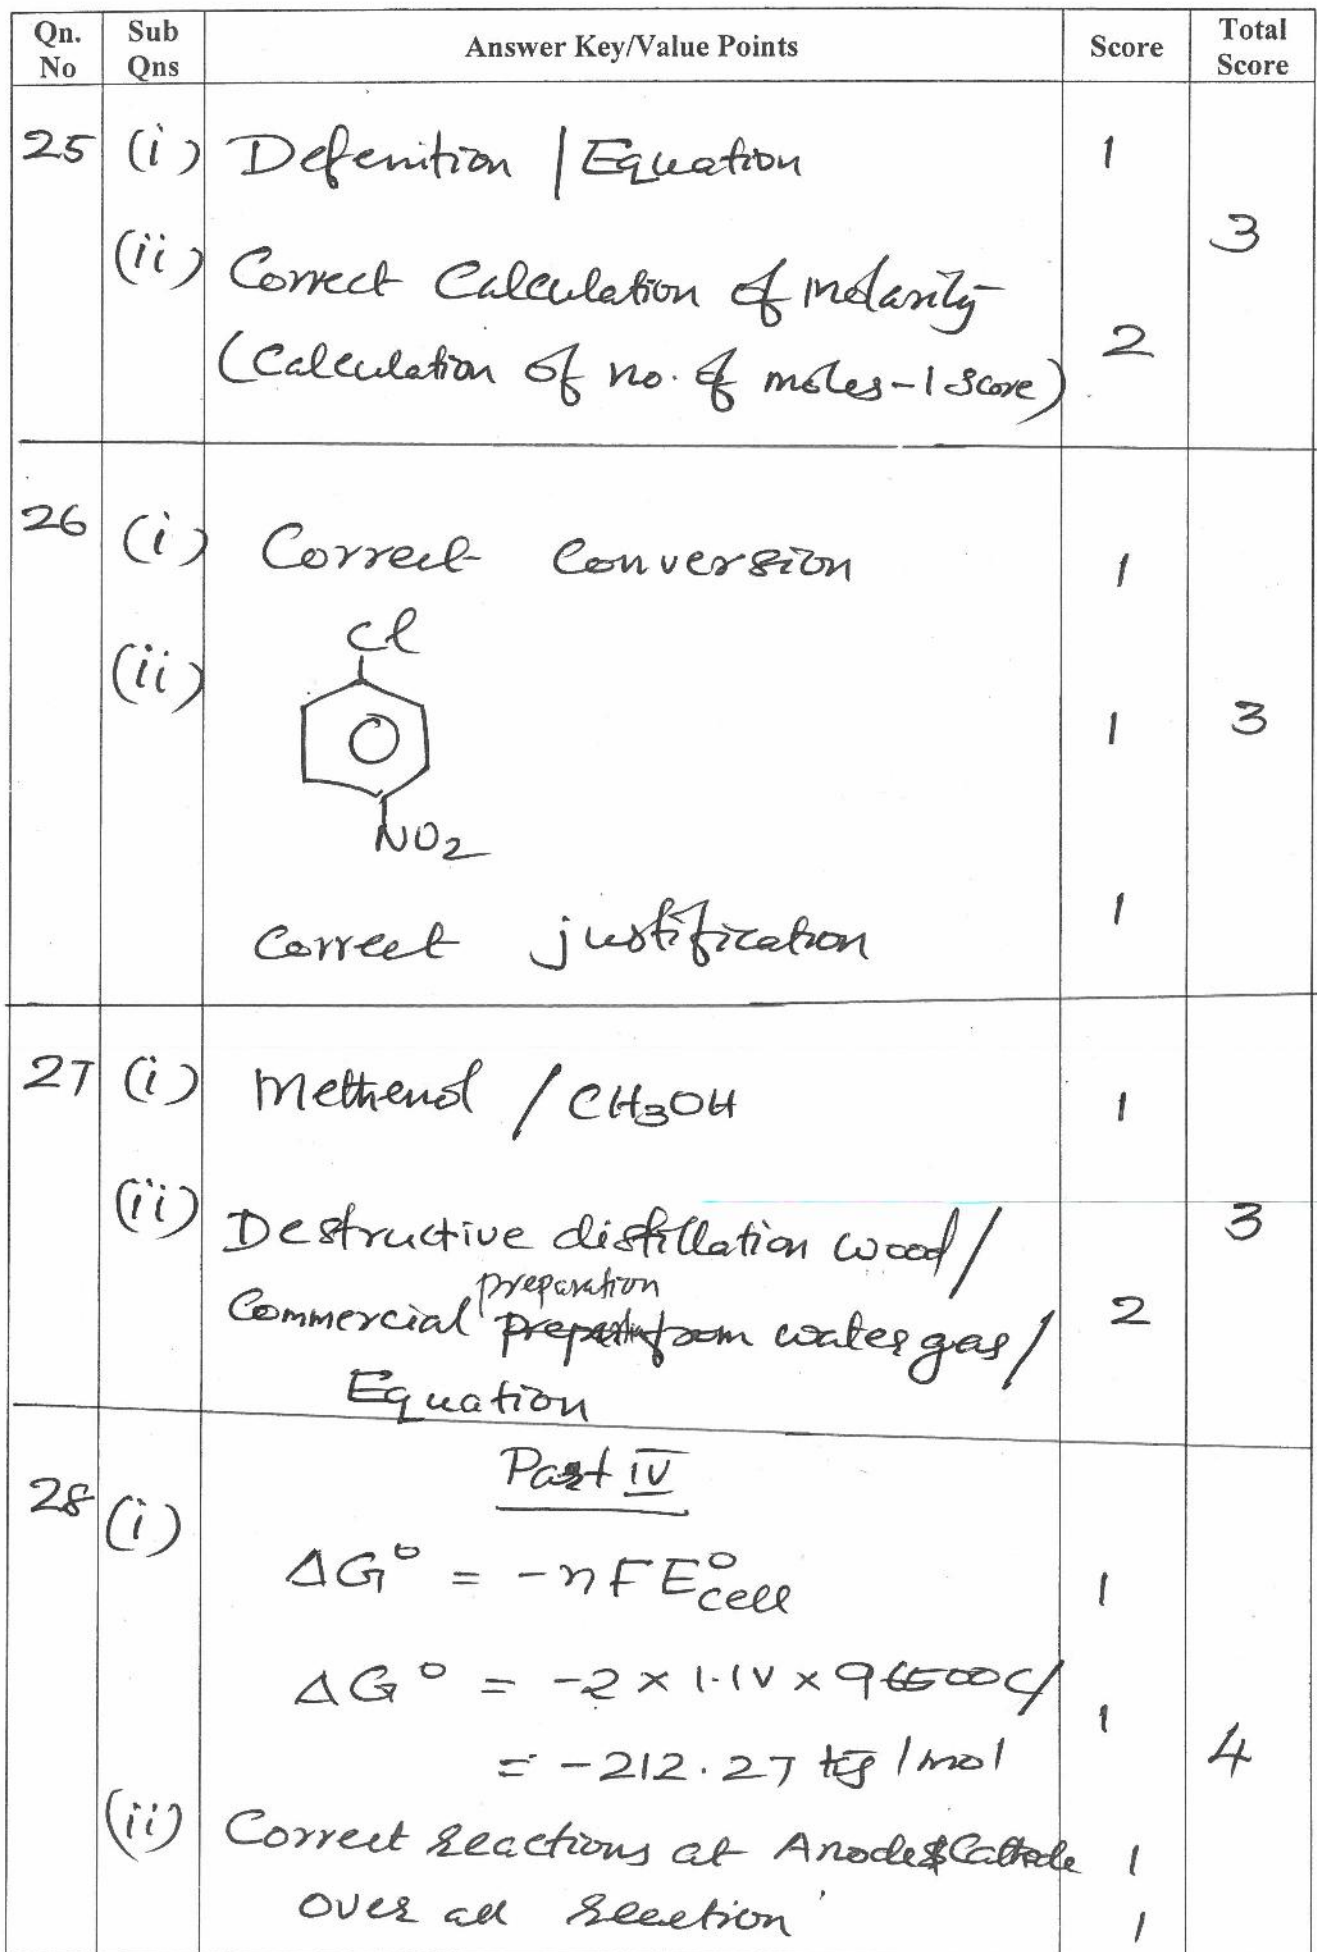 Qn. No | Sub Qns | Answer Key/Value Points | Score | Total Score
25 (i) Defenition / Equation 1
3
(ii) Correct Calculation of molarity
(Calculation of no. of moles - 1 score) 2
26 (i) Correct Conversion 1
(ii) Cl
1 3
NO2
Correct justification 1
27 (i) Methenol / CH3OH 1
(ii) Destructive distillation wood / 3
preparation
Commercial from water gas / 2
Equation
Part IV
28 (i)
ΔG° = -nFE°cell 1
ΔG° = -2 × 1.1V × 96500C/ 1
= -212.27 kJ / mol 4
(ii) Correct reactions at Anode & Cathode 1
over all reection 1